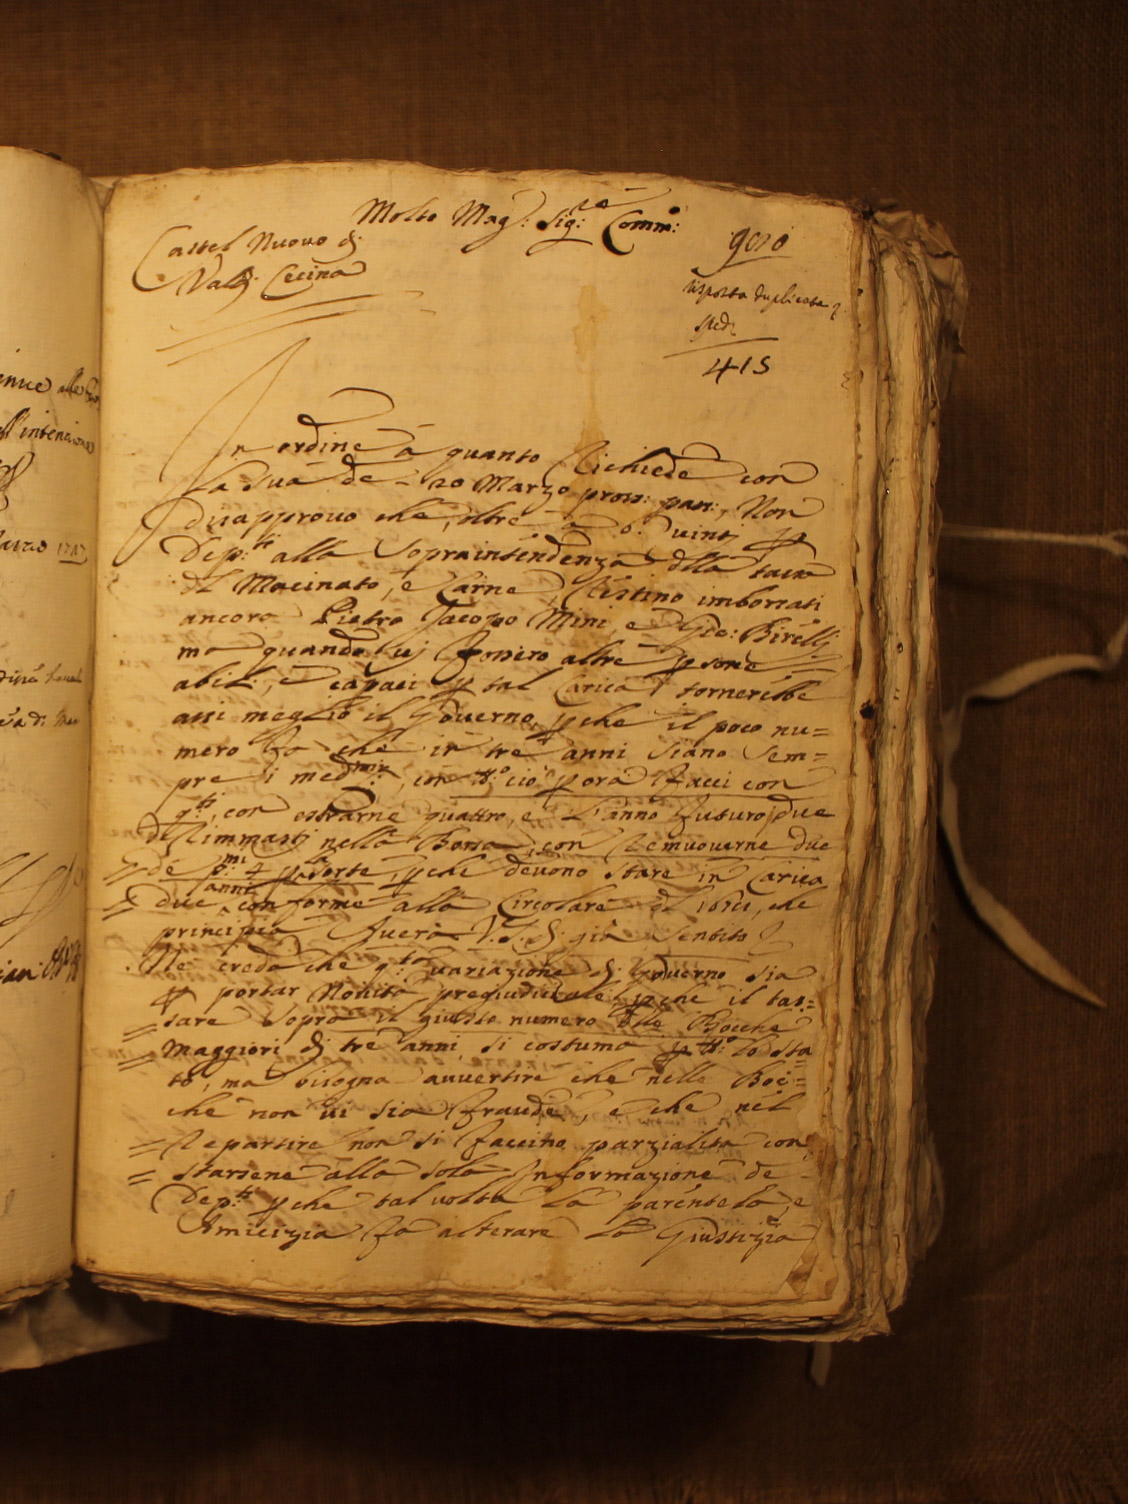 Molto Mag: Sig:re Comm:
Castel Nuovo di
Val di Cecina
risposta duplicata
sped:
415
In ordine à quanto Richiede con
la sua de 20 Marzo pross: pass:, Non
disapprovo che, oltre à 6: vinti p
Dep:ti alla Sopraintendenza della tassa
del Macinato, e Carne, Restino imborsati
ancora Pietro Jacopo Mini, e Gio: Birelli
ma quando vi fossero altre psone
abili, e capaci p tal Carica, tornerebbe
assi meglio il Governo, pche il poco nu=
mero fa che in tre anni siano sem=
pre i med:mi, con t:o ciò p ora facci con
q:ti, con estrarne quattro, e l'anno futuro due
de Rimmasti nella Borsa, con Remuoverne due
de p:mi 4 p sorte, pche devono stare in Carica
due anni conforme alla Circolare del, che
principia fuera V.S. di già sentito
Ne credo che q:ta variazione di Governo sia
p portar Novità pregiudiciale, pche il tas=
sare sopra il giusto numero delle Bocche
maggiori di tre anni, si costuma p t:o lo Sta
to, ma bisogna avvertire che nelle Boc=
che non vi sia fraude, e che nel
Repartire non si faccino parzialità con
starsene alla sola Informazione de
Dep:ti pche tal volta la parentela, e
Amicizia fa alterare la Giustizia